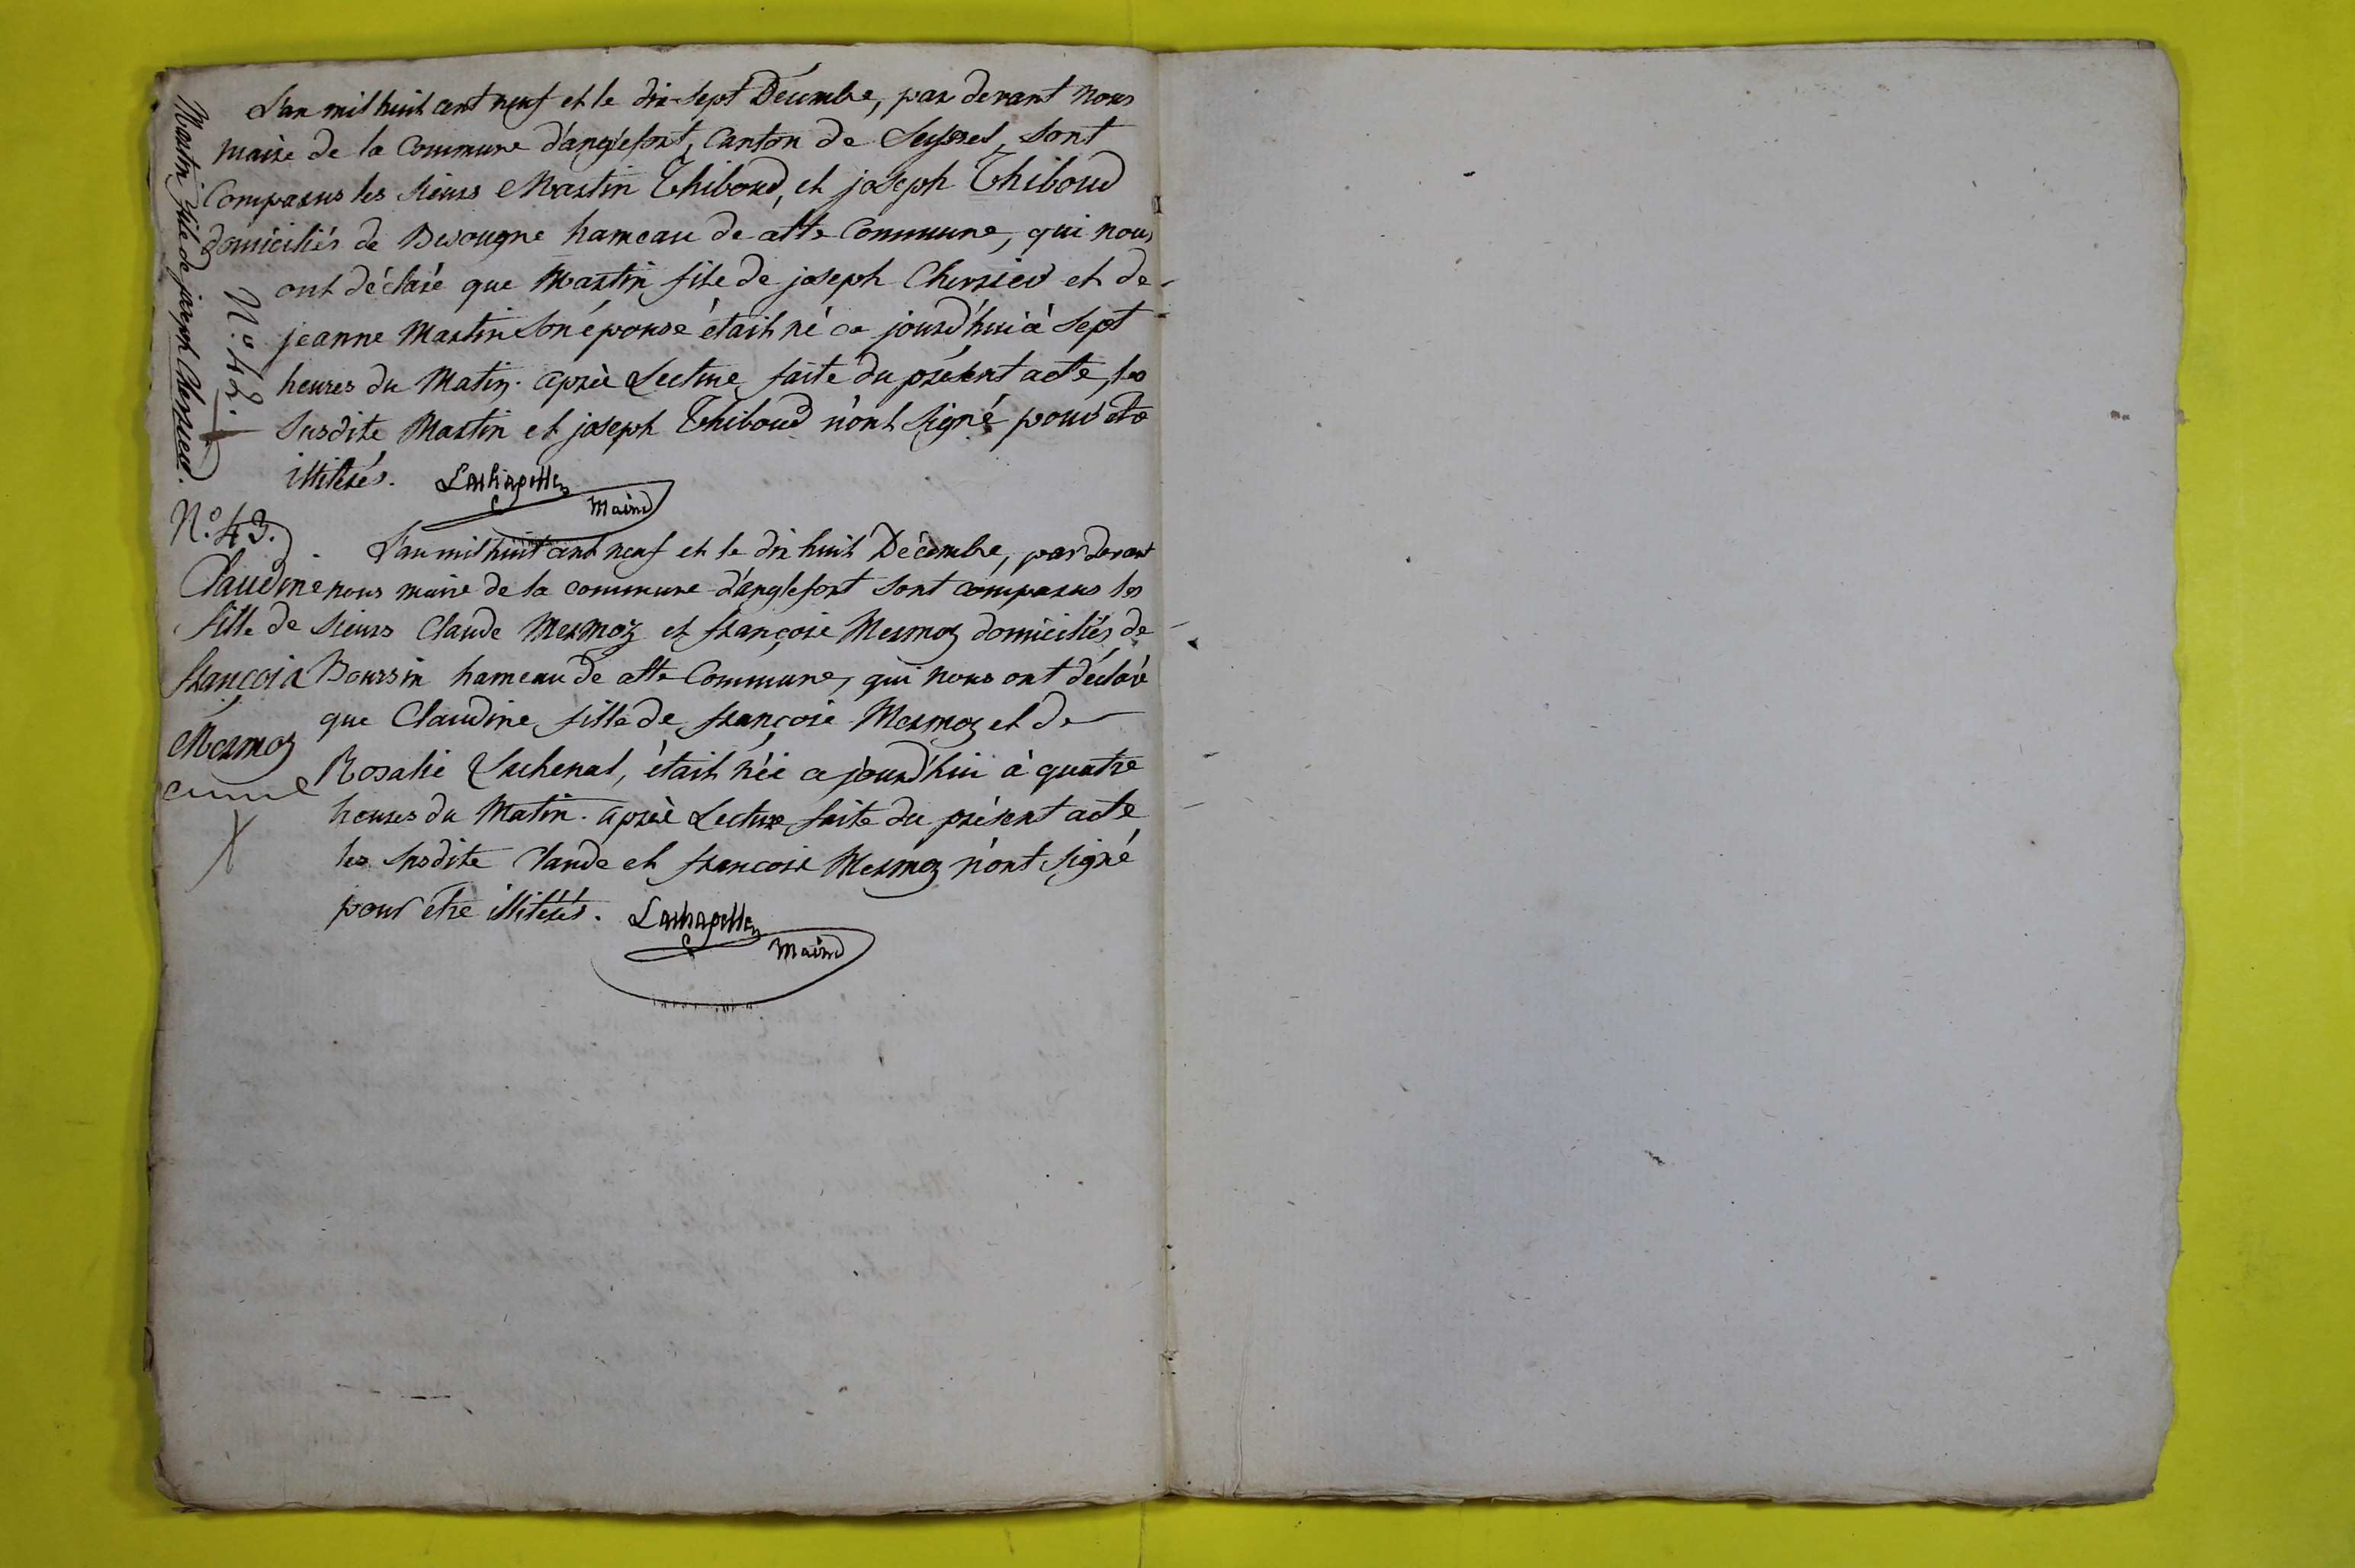 Martin fils de joseph Chervied.
N.° 42.
L'an mil huit cent neuf et le dix-sept Décembre, par devant nous
maire de la Commune d'anglefort, Canton de Seyssel, sont
Comparus les sieurs Martin Thiboud, et joseph Thiboud
domiciliés de hameau de cette Commune, qui nous
ont déclaré que Martin fils de joseph Chervied et de
jeanne Martin son épouse était né ce jourd'hui à sept
heures du Matin. après Lecture faite du présent acte, les
susdits Martin et joseph Thiboud n'ont signé pour etre
illiterés. Lachapelle
Maire
N.° 43.
Claudine
fille de
françois
Mermoz
L'an mil huit cent neuf et le dix huit Décembre, par devant
nous maire de la commune d'anglefort sont comparus les
sieurs Claude Mermoz et françois Mermoz domiciliés de
Boursin hameau de cette Commune, qui nous ont déclaré
que Claudine fille de françois Mermoz et de
Rosalie était née ce jourd'hui à quatre
heures du Matin. après Lecture faite du présent acte
les susdits Claude et francois Mermoz n'ont signé
pour etre illiterés. Lachapelle
Maire